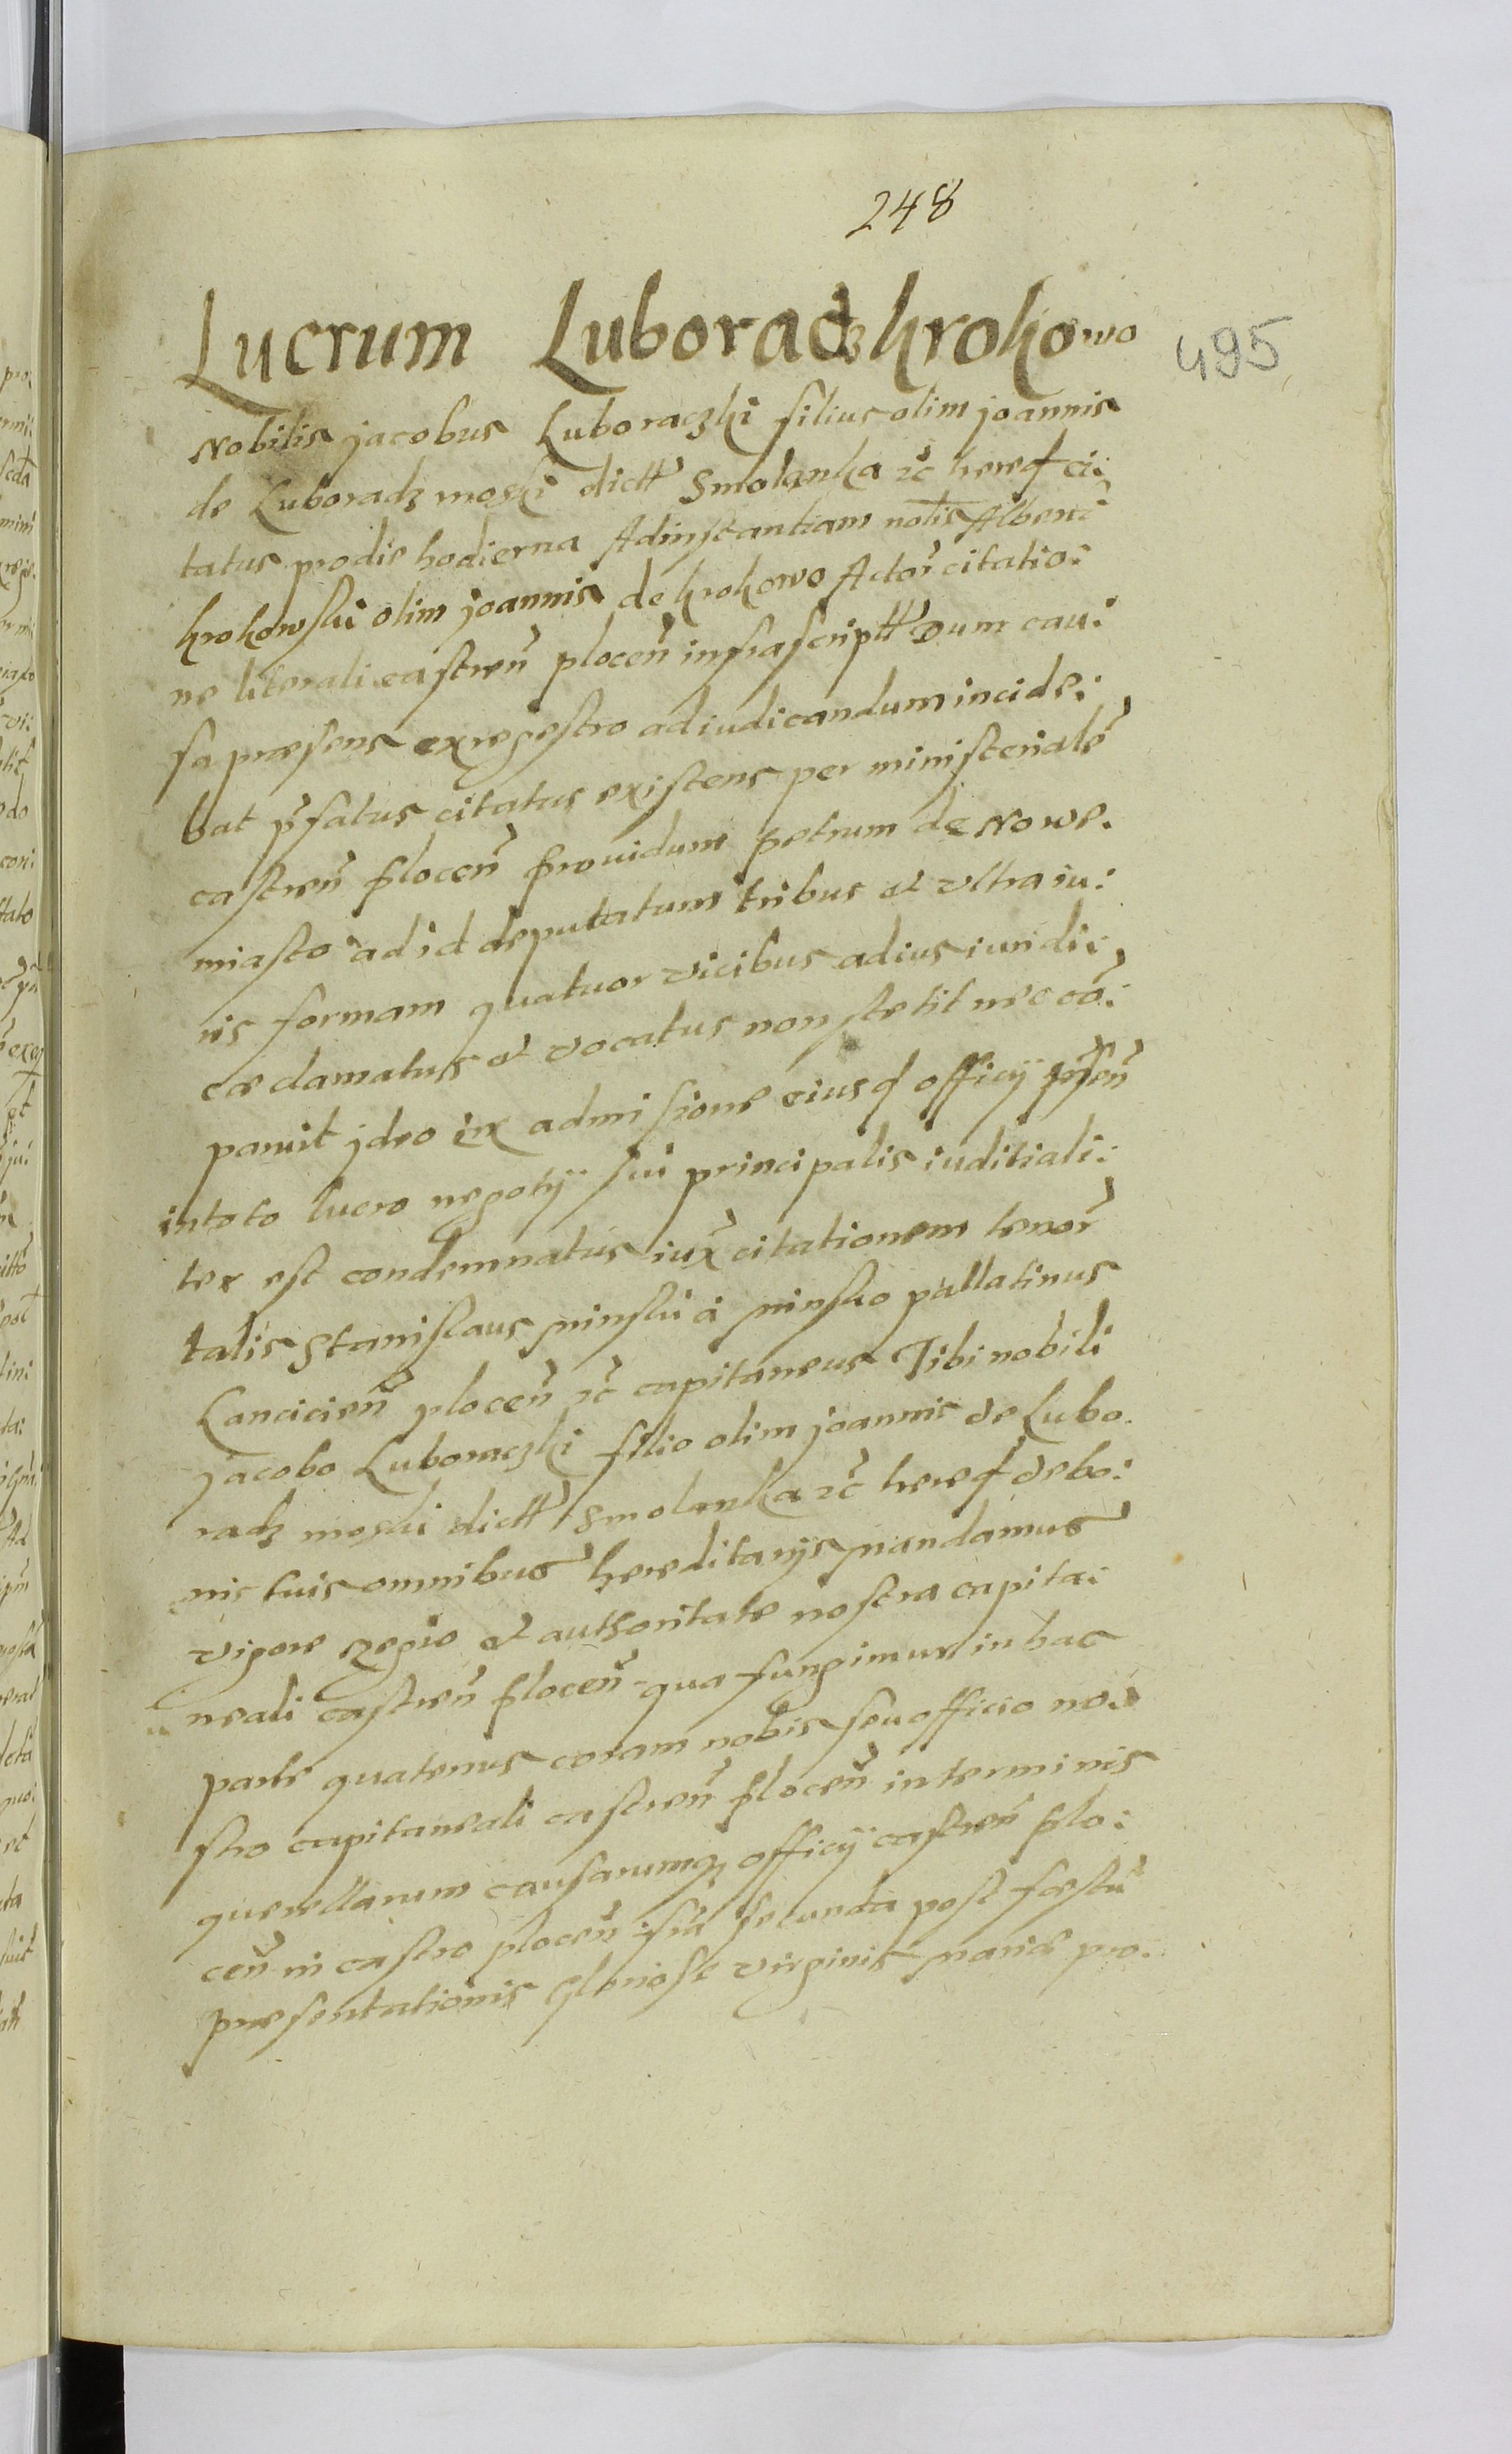 248
Lucrum Luboradz krokowo
495
Nobilis jacobus Luboraczki filius olim joannis
de Luboradz moski dictt Smolanka &c hered ci:
tatus prodie hodierna Adinstantiam nobis Alberti
krokowski olim joannis de krokowo Actor̃ citatio:
ne literali castreñ ploceñ infrascriptt Dum cau:
sa præsens exregestro adiudicandum incide:
bat p̃fatus citatus existens per ministerialẽ
castreñ ploceñ prouidum petrum de Nowe.
miasto ad id deputatum tribus et vltra iu:
ris formam quatuor vicibus adius iuridi:
ce clamatus et vocatus non stetit nec cõ:
paruit jdeo ex admissione eiusd officÿ p̃señ
intoto lucro negotÿ sui principalis iuditiali:
ter est condemnatus iux̃ citationem tenor̃
talis Stanislaus minski á minsko pallatinus
Lancicieñ ploceñ &c capitaneus Tibi nobili
jacobo Luboraczki filio olim joannis de Lubo.
radz moski dictt Smolanka &c hered de bo:
nis tuis omnibus hereditarijs mandamus
vigore regio et authoritate nostra capita:
neali castreñ ploceñ qua fungimur in hac
parte quatenus coram nobis seu officio no:
stro capitaneali castreñ ploceñ in terminis
querellarum causarumq officÿ castreñ plo:
ceñ in castro ploceñ fr̃ia secunda post festũ
præsentationis Gloriose virginis mariæ pro.